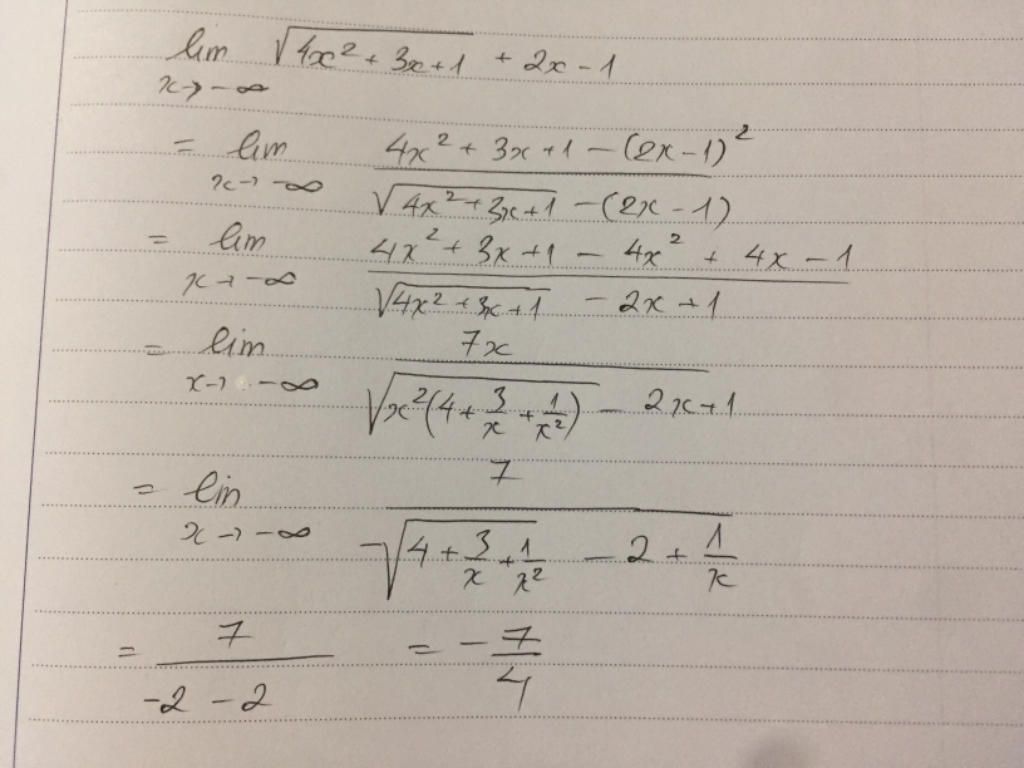 lim x→-∞ √(4x² + 3x + 1) + 2x - 1
= lim x→-∞ (4x² + 3x + 1 - (2x - 1)²) / (√(4x² + 3x + 1) - (2x - 1))
= lim x→-∞ (4x² + 3x + 1 - 4x² + 4x - 1) / (√(4x² + 3x + 1) - 2x + 1)
= lim x→-∞ 7x / (√(x²(4 + 3/x + 1/x²)) - 2x + 1)
= lin x→-∞ 7 / (-√(4 + 3/x + 1/x²) - 2 + 1/x)
= 7 / (-2 - 2) = -7/4